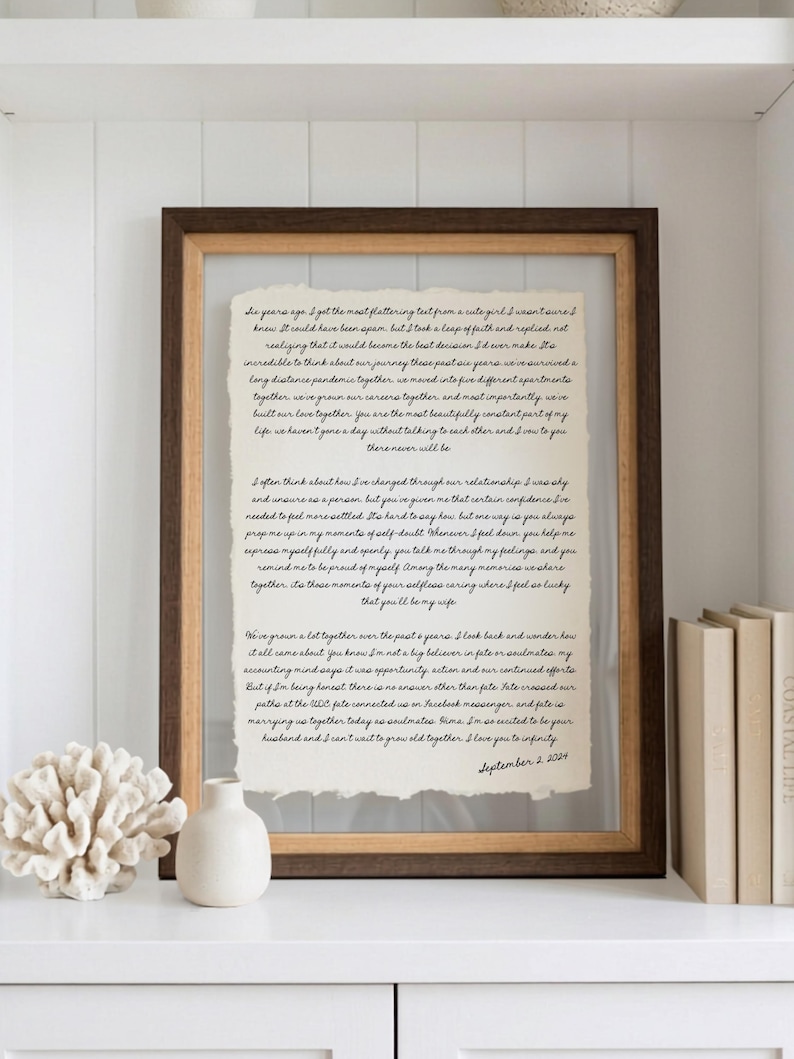 Six years ago, I got the most flattering text from a cute girl I wasn't sure I
knew. It could have been spam, but I took a leap of faith and replied, not
realizing that it would become the best decision I'd ever make. It's
incredible to think about our journey these past six years, we've survived a
long distance pandemic together, we moved into five different apartments
together, we've grown our careers together, and most importantly, we've
built our love together. You are the most beautifully constant part of my
life, we haven't gone a day without talking to each other and I vow to you
there never will be.
I often think about how I've changed through our relationship. I was shy
and unsure as a person, but you've given me that certain confidence I've
needed to feel more settled. It's hard to say how, but one way is you always
prop me up in my moments of self-doubt. Whenever I feel down, you help me
express myself fully and openly, you talk me through my feelings, and you
remind me to be proud of myself. Among the many memories we share
together, it's those moments of your selfless caring where I feel so lucky
that you'll be my wife.
We've grown a lot together over the past 6 years, I look back and wonder how
it all came about. You know I'm not a big believer in fate or soulmates, my
accounting mind says it was opportunity, action and our continued efforts.
But if I'm being honest, there is no answer other than fate. Fate crossed our
paths at the UDC, fate connected us on Facebook messenger, and fate is
marrying us together today as soulmates. Hima, I'm so excited to be your
husband and I can't wait to grow old together. I love you to infinity.
September 2, 2024
SALT
COASTAL LIFE